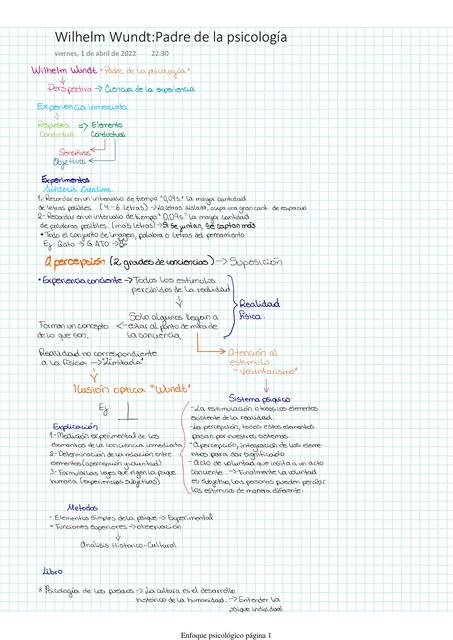 Wilhelm Wundt:Padre de la psicología
viernes, 1 de abril de 2022 22:30
Wilhelm Wundt "Padre de la psicología"
Perspectiva → Ciencia de la experiencia
Experiencia inmediata
Respuesta => Elemento
Conductual Conductual
Sensitivos
Objetivos
Experimentos
Síntesis Creativa
1- Recordar en un intervalo de tiempo "0,09s" la mayor cantidad
de letras posibles. (4-6 letras) → La letra aislada, ocupa una gran cant. de espacio
2- Recordar en un intervalo de tiempo "0,09s" la mayor cantidad
de palabras posibles (más letras) → Si se juntan, se captan más
* Todo el conjunto de imagen, palabra o letras del pensamiento.
Ej: Gato → G ATO →
Apercepción (2 grados de conciencias) → Suposición
* Experiencia conciente → Todos los estímulos
percibidos de la realidad
Realidad
física.
Solo algunos llegan a
Forman un concepto <- estar al punto de mira de
de lo que son. la conciencia
Realidad no correspondiente
a la física → "Limitado"
Atención al
estímulo
"Voluntarismo"
Ilusión optica "Wundt"
Ej
Sistema psíquico
- La estimulación o todos los elementos
existente de la realidad.
- La percepción, todos estos elementos
pasan por nuestros sistemas.
- Apercepción, integración de los eleme-
ntos para dar significado
- Acto de voluntad que insita a un acto
conciente. → Finalmente la voluntad
es subjetiva, las personas pueden percibir
los estímulos de manera diferente.
Explicación
1- Medición experimental de los
elementos de la conciencia inmediata
2- Determinación de la relación entre
elementos (apercepción voluntad)
3- Formular las leyes que rigen la psique
humana (experiencias subjetivas)
Metodos
- Elementos simples de la psique → Experimental
- Funciones superiores → observación
Análisis Historico-Cultural
Libro
* Psicología de los pueblos → La cultura es el desarrollo
histórico de la humanidad. → Entender la
psique individual
Enfoque psicológico página 1